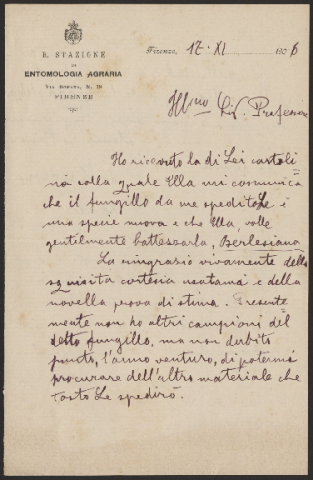 R. STAZIONE
DI
ENTOMOLOGIA AGRARIA
VIA ROMANA, N. 19
FIRENZE
Firenze, 17. XI 1906
Ill.mo Sig. Professore
Ho ricevuto la di Lei cartoli
na colla quale Ella mi comunica
che il fungillo da me speditoLe è
una specie nuova e che Ella, volle
gentilmente battezzarla, Berlesiana
La ringrazio vivamente della
squisita cortesia usatami e della
novella prova di stima. Presente
mente non ho altri campioni del
detto fungillo, ma non dubito
punto, l'anno venturo, di potermi
procurare dell'altro materiale che
tosto Le spedirò.